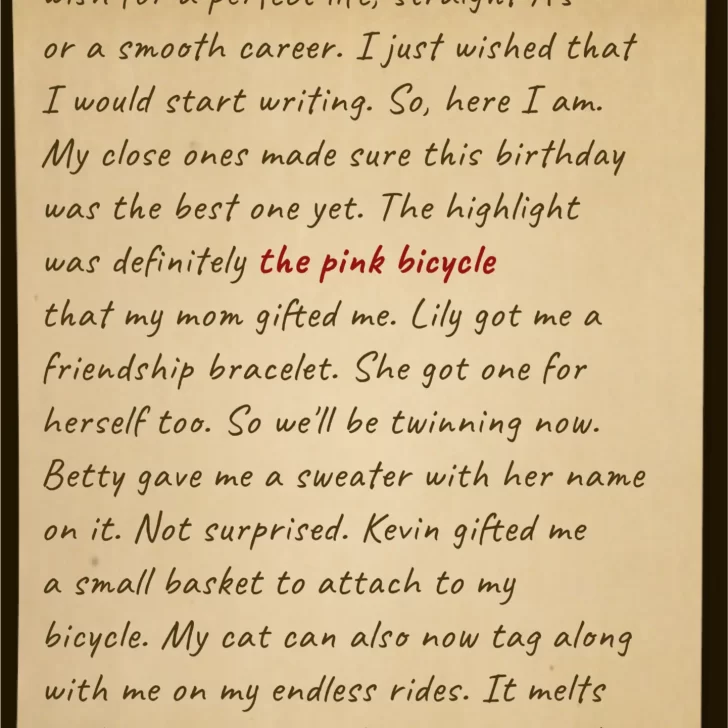 wish for a perfect life, straight A's
or a smooth career. I just wished that
I would start writing. So, here I am.
My close ones made sure this birthday
was the best one yet. The highlight
was definitely the pink bicycle
that my mom gifted me. Lily got me a
friendship bracelet. She got one for
herself too. So we'll be twinning now.
Betty gave me a sweater with her name
on it. Not surprised. Kevin gifted me
a small basket to attach to my
bicycle. My cat can also now tag along
with me on my endless rides. It melts